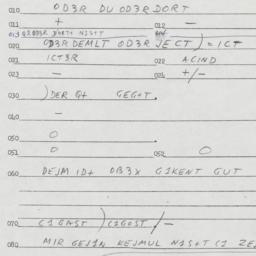 010 OD3R DU OD3RDORT
011 + 012 —
013 OD3R DORT NI$HT
020 OD3RDEMLT OD3R JECT) = ICT
021 ICT3R 022 ACIND
023 — 024 +/—
030 )DER G+ GEGOT.
040 —
050 O
051 O 052 O
060 DEJM ID+ DB3X GIKENT GUT
070 CIGAST)CIGOST/—
080 MIR GEJIN KEJMUL NI$HT CI ZE